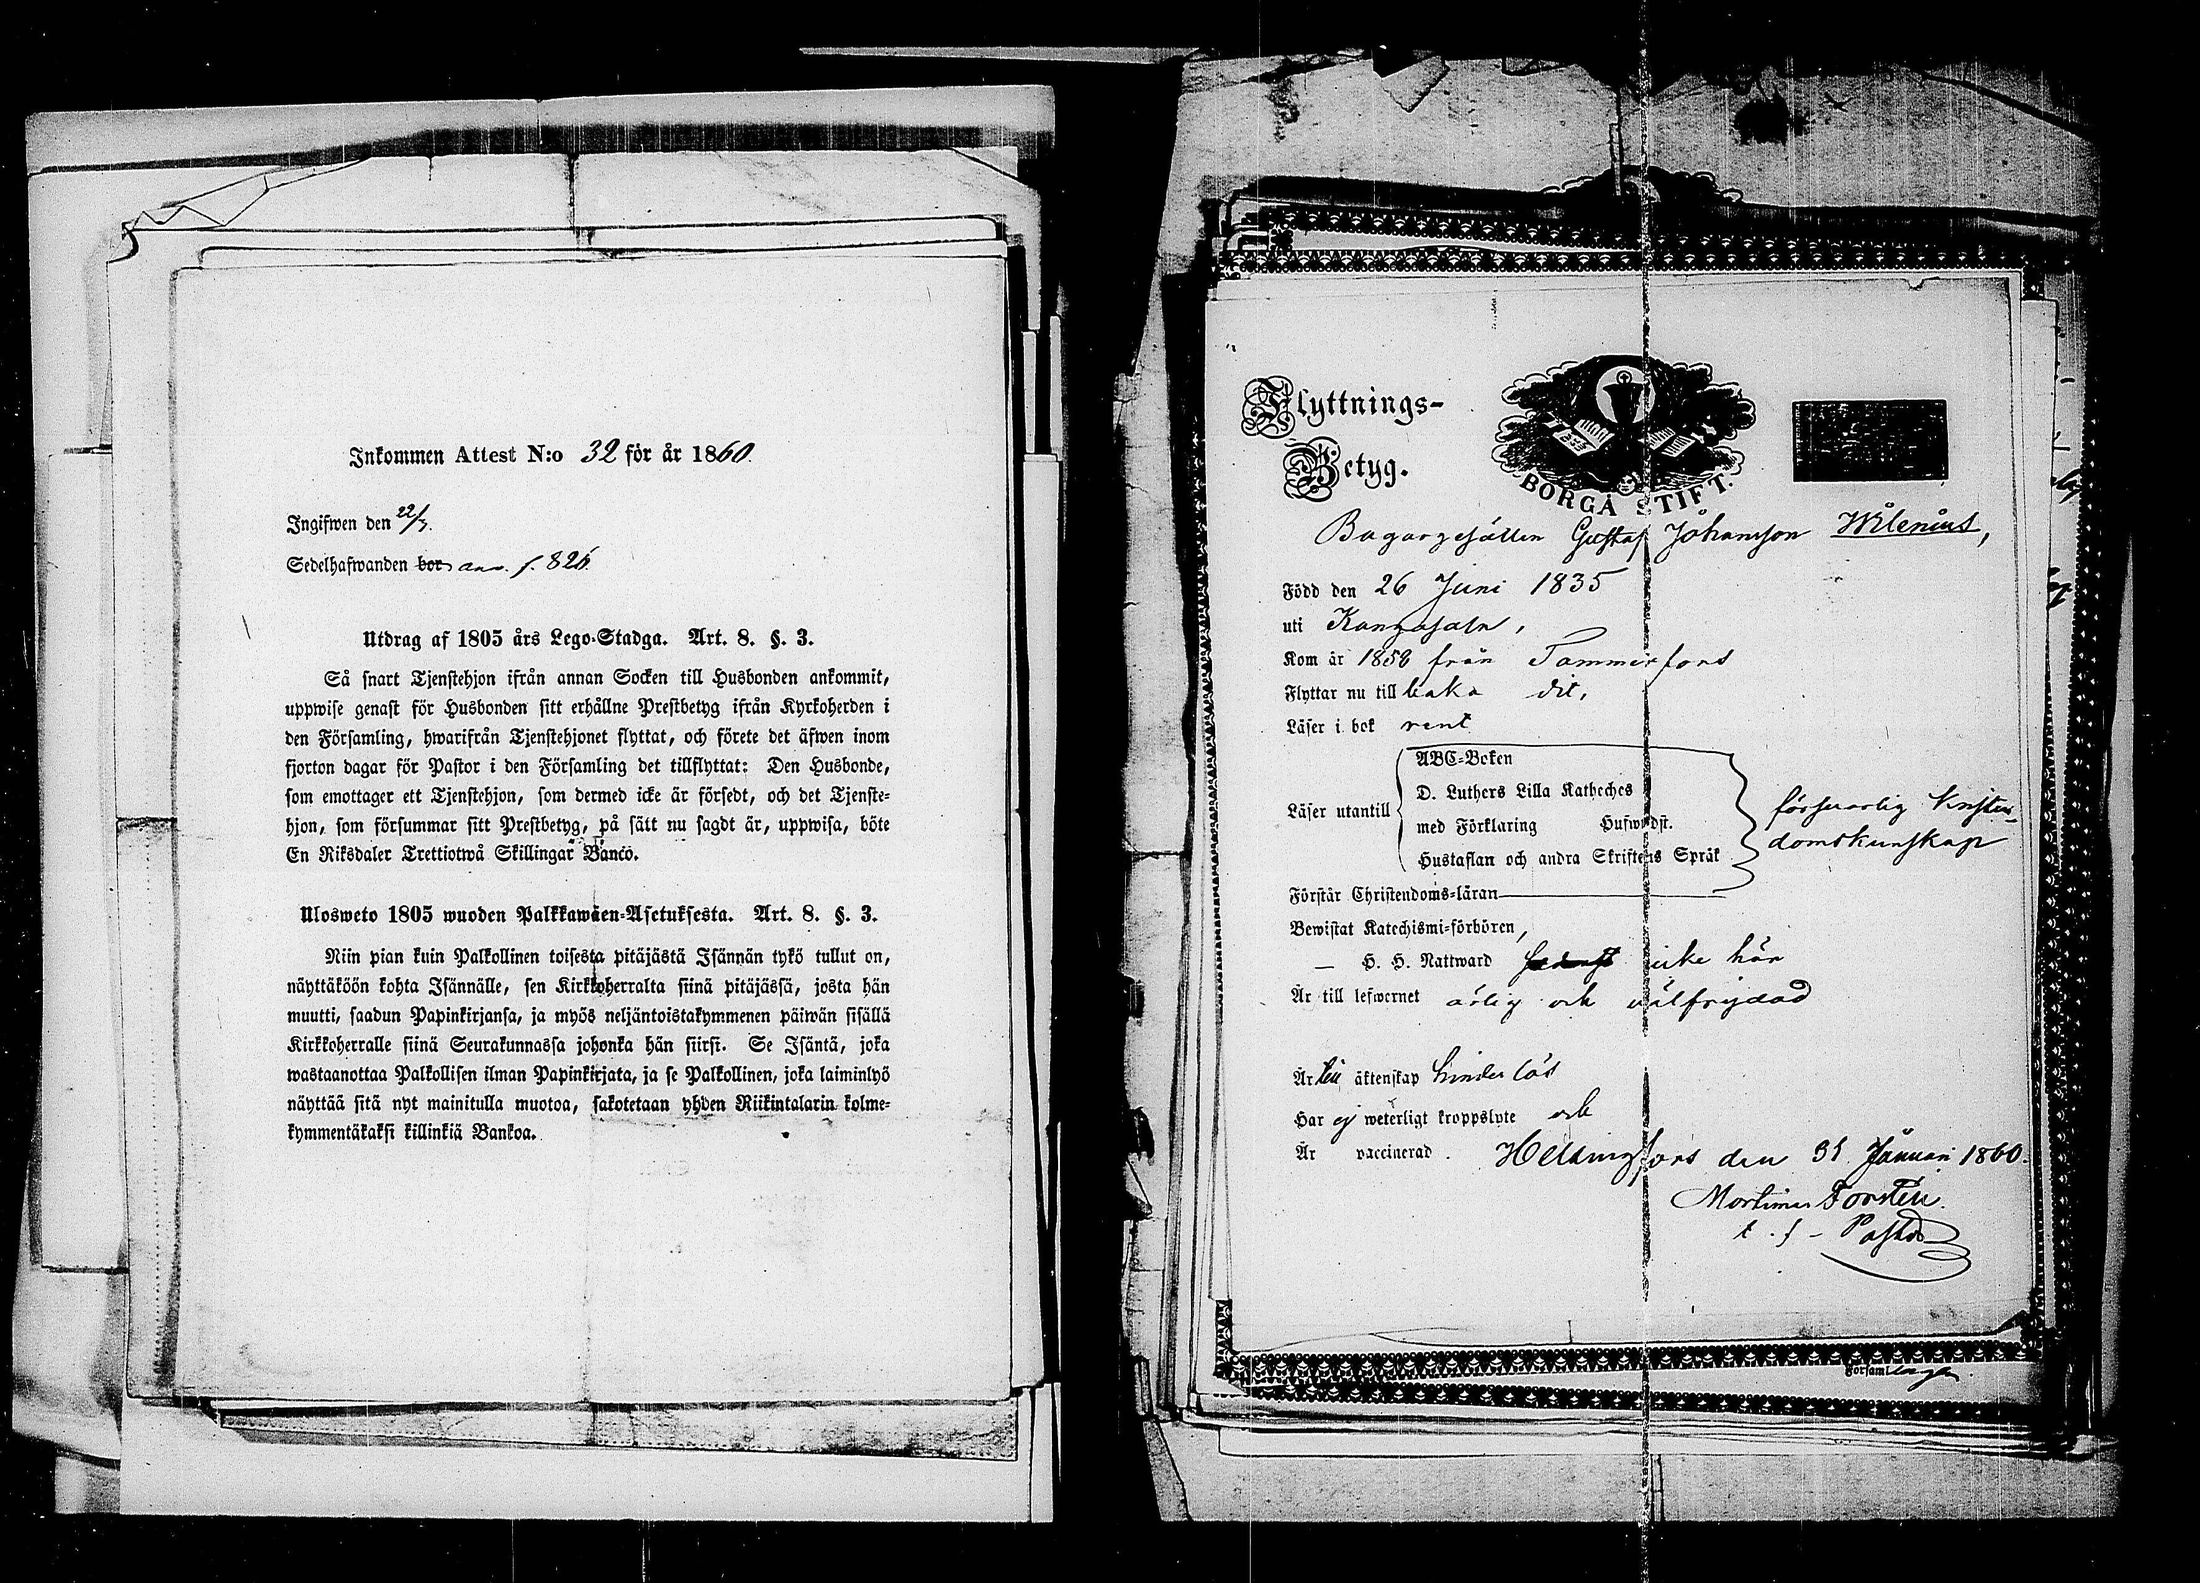 Inkommen Attest N:o 32 för år 1860.
Ingifwen den 22/3.
Sedelhafwanden bor ann. f. 826.
Utdrag af 1805 års Lego-Stadga. Art. 8. §. 3.
Så snart Tjenstehjon ifrån annan Socken till Husbonden ankommit,
uppwise genast för Husbonden sitt erhållne Prestbetyg ifrån Kyrkoherden i
den Församling, hwarifrån Tjenstehjonet flyttat, och förete det äfwen inom
fjorton dagar för Pastor i den Församling det tillflyttat: Den Husbonde,
som emottager ett Tjenstehjon, som dermed icke är försedt, och det Tjenste-
hjon, som försummar sitt Prestbetyg, på sätt nu sagdt är, uppwisa, böte
En Riksdaler Trettiotwå Skillingar Banco.
Ulosweto 1805 wuoden Palkkawäen-Asetuksesta. Art. 8. §. 3.
Niin pian kuin Palkollinen toisesta pitäjästä Isännän tykö tullut on,
näyttäköön kohta Isännälle, sen Kirkkoherralta siinä pitäjässä, josta hän
muutti, saadun Papinkirjansa, ja myös neljäntoistakymmenen päiwän sisällä
Kirkkoherralle siinä Seurakunnassa johonka hän siirsi. Se Isäntä, joka
wastaanottaa Palkollisen ilman Papinkirjata, ja se Palkollinen, joka laiminlyö
näyttää sitä nyt mainitulla muotoa, sakotetaan yhden Riikintalarin kolme-
kymmentäkaksi killinkiä Bankoa.
Flyttnings-
Betyg.
BORGÅ STIFT.
Bagargesällen Gustaf Johansson Wilenius,
Född den 26 Juni 1835
uti Kangasala,
Kom år 1858 från Tammerfors
Flyttar nu till baka dit,
Läser i bok rent
ABC-Boken
D. Luthers Lilla Katheches
Läser utantill
med Förklaring Hufwudst.
Hustaflan och andra Skriftens Språk
försvarlig Kristen-
domskunskap
Förstår Christendoms-läran
Bewistat Katechismi-förhören,
— H. H. Nattward icke här
Är till lefwernet ärlig och välfrejdad
Är till äktenskap hinderlös
Har ej weterligt kroppslyte och
Är vaccinerad. Helsingfors den 31 Januari 1860.
Mortimer Forstén.
t. f. Pastor
Församlingen.